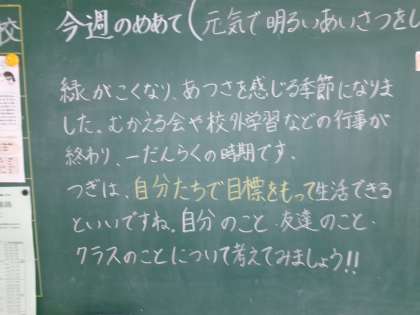 校
今週のめあて(元気で明るいあいさつをし
緑がこくなり、あつさを感じる季節になりま
した。むかえる会や校外学習などの行事が
終わり、一だんらくの時期です。
つぎは、自分たちで目標をもって生活できる
といいですね。自分のこと・友達のこと・
クラスのことについて考えてみましょう!!